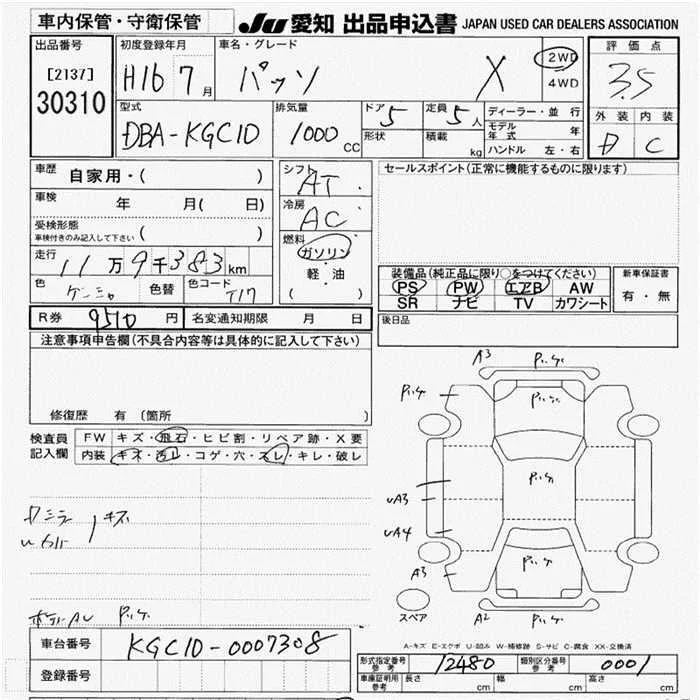 車内保管・守衛保管
JU 愛知 出品申込書 JAPAN USED CAR DEALERS ASSOCIATION
出品番号
[2137]
30310
初度登録年月
H16 7 月
車名・グレード
パッソ X
2WD
4WD
評価点
3.5
外装 内装
D C
型式
DBA-KGC10
排気量
1000 CC
ドア 5
形状
定員 5 人
積載 kg
ディーラー・並行
モデル年式 年
ハンドル 左・右
車歴 自家用・( )
車検 年 月( 日)
受検形態
車検付きのみ記入して下さい ( )
走行 11万9千383km
色 色替 色コード T17
シフト AT
冷房 AC
燃料
ガソリン
軽・油
( )
セールスポイント(正常に機能するものに限ります)
装備品(純正品に限り○をつけてください)
PS PW エアB AW
SR ナビ TV カワシート
新車保証書
有・無
R券 9510 円 名変通知期限 月 日
後日品
注意事項申告欄(不具合内容等は具体的に記入して下さい)
修復歴 有 (箇所 )
検査員記入欄
FW キズ・飛石・ヒビ割・リペア跡・X要
内装 キズ・汚レ・コゲ・穴・スレ・キレ・破レ
キズ
A3
uA3
uA4
A3
A2
スペア
A-キズ E-エクボ U-凹み W-補修跡 S-サビ C-腐食 XX-交換済
車台番号 KGC10-0007308
登録番号
形式指定番号 参考 12480 類別区分番号 参考 0001
車庫証明用 参考 長さ cm 幅 cm 高さ cm